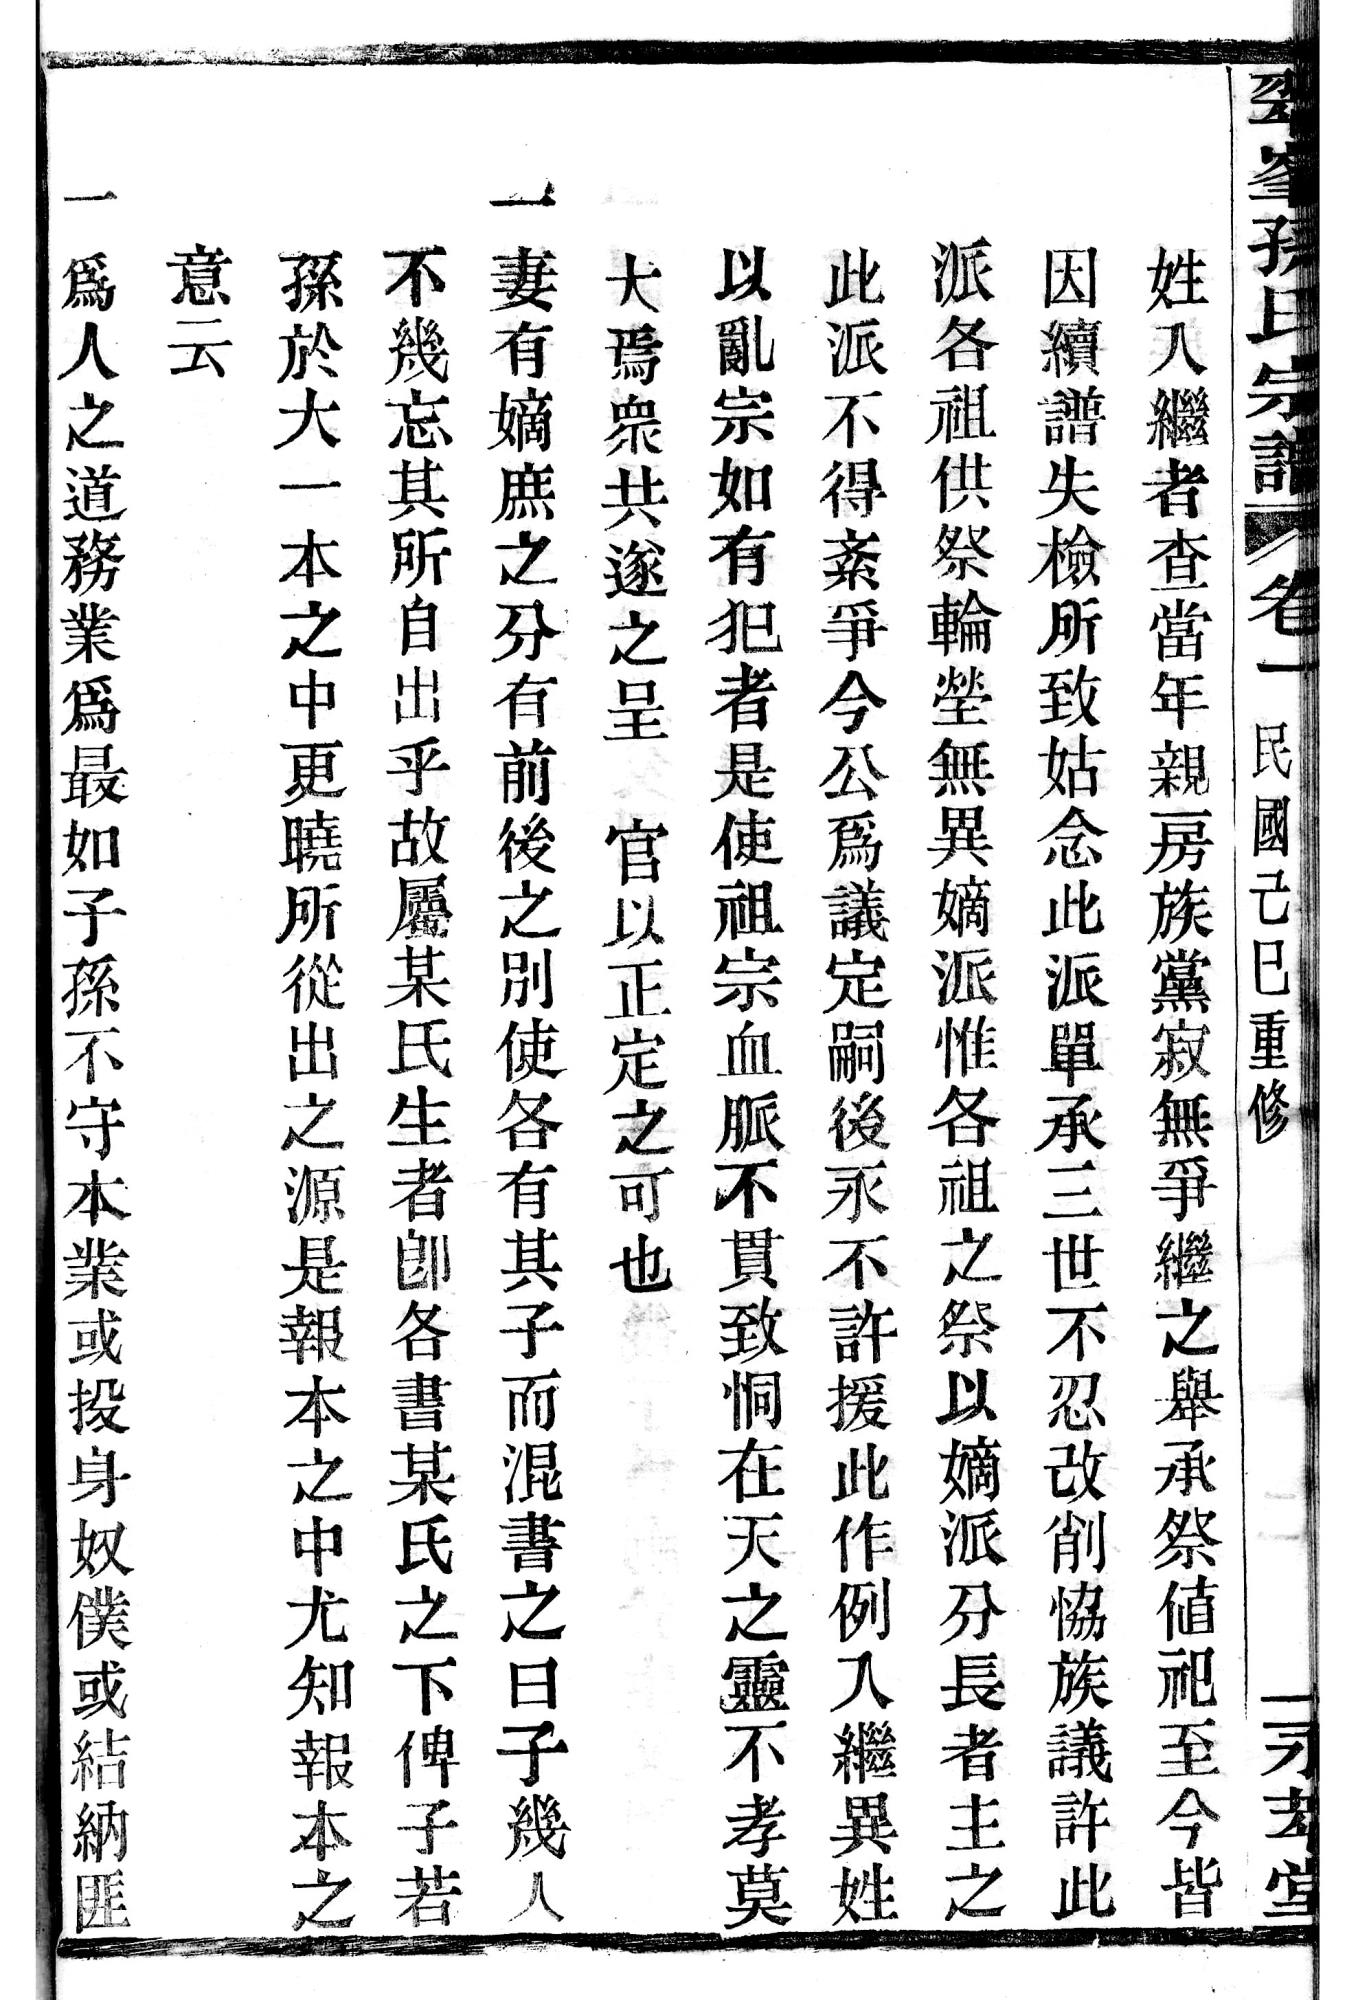 翠峯孫氏宗譜 卷一 民國己巳重修 一 永孝堂
姓入繼者查當年親房族黨寂無爭繼之舉承祭値祀至今皆
因續譜失檢所致姑念此派單承三世不忍改削協族議許此
派各祖供祭輪塋無異嫡派惟各祖之祭以嫡派分長者主之
此派不得紊爭今公爲議定嗣後永不許援此作例入繼異姓
以亂宗如有犯者是使祖宗血脈不貫致恫在天之靈不孝莫
大焉衆共遂之呈 官以正定之可也
一 妻有嫡庶之分有前後之別使各有其子而混書之曰子幾人
不幾忘其所自出乎故屬某氏生者卽各書某氏之下俾子若
孫於大一本之中更曉所從出之源是報本之中尤知報本之
意云
一 爲人之道務業爲最如子孫不守本業或投身奴僕或結納匪